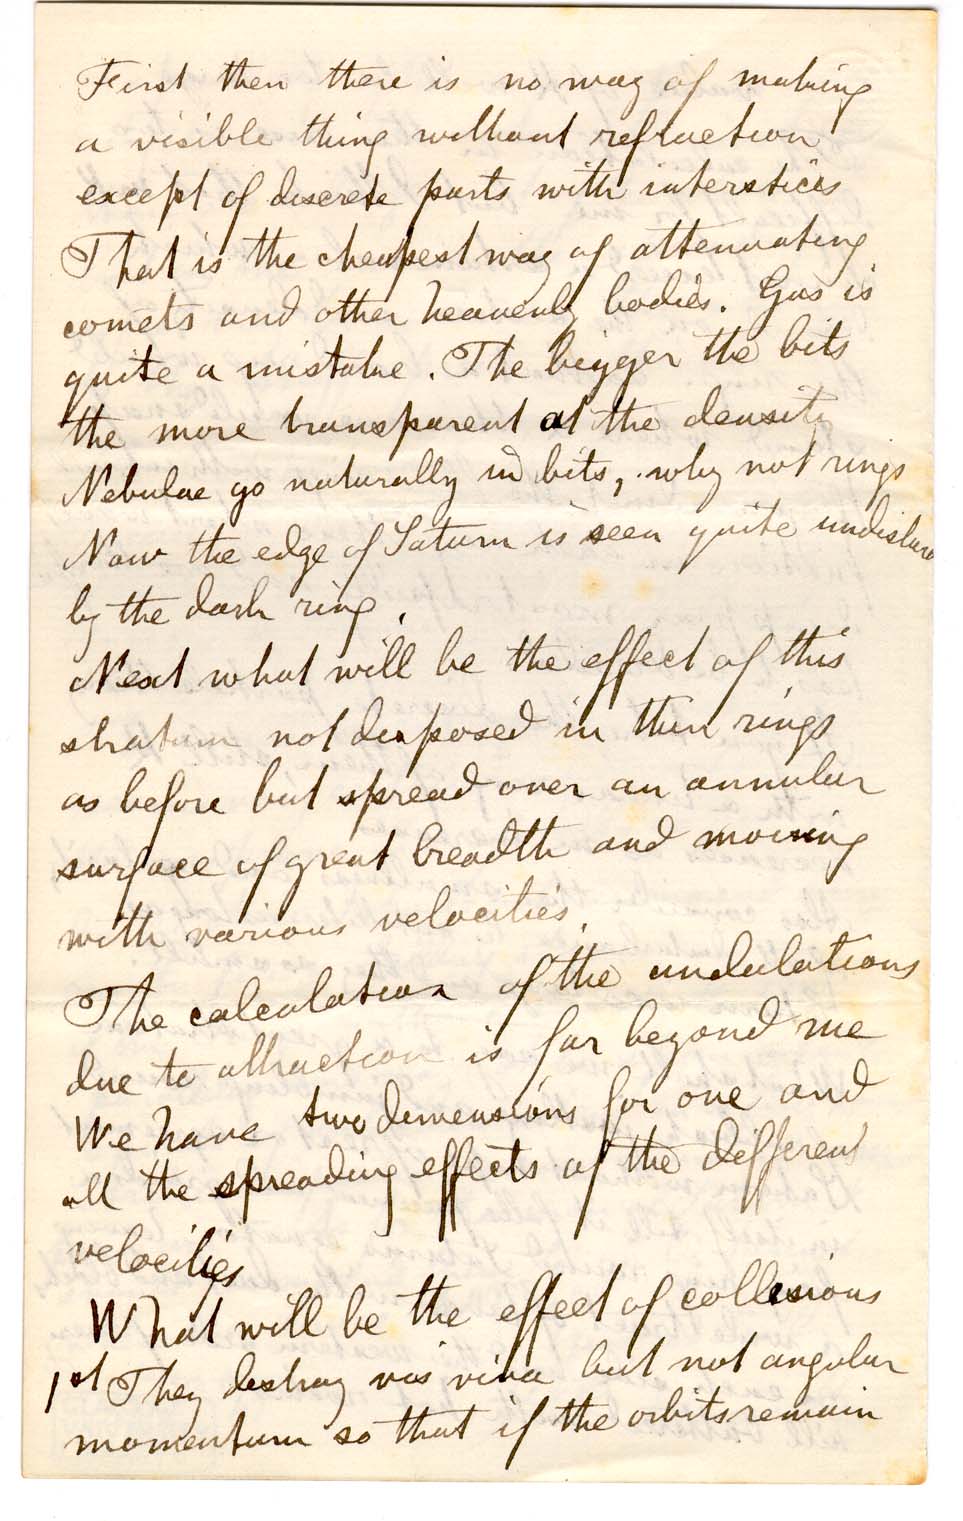 First then there is no way of making
a visible thing without refraction
except of discrete parts with interstices
That is the cheapest way of attenuating
comets and other heavenly bodies. Gas is
quite a mistake. The bigger the bits
the more transparent at the density
Nebulae go naturally in bits, why not rings
Now the edge of Saturn is seen quite
by the dark ring.
Next what will be the effect of this
stratum not disposed in thin rings
as before but spread over an annular
surface of great breadth and moving
with various velocities.
The calculation of the undulations
due to attraction is far beyond me
We have two dimensions for one and
all the spreading effects of the different
velocities
What will be the effect of collisions
1st They destroy vis viva but not angular
momentum so that if the orbits remain